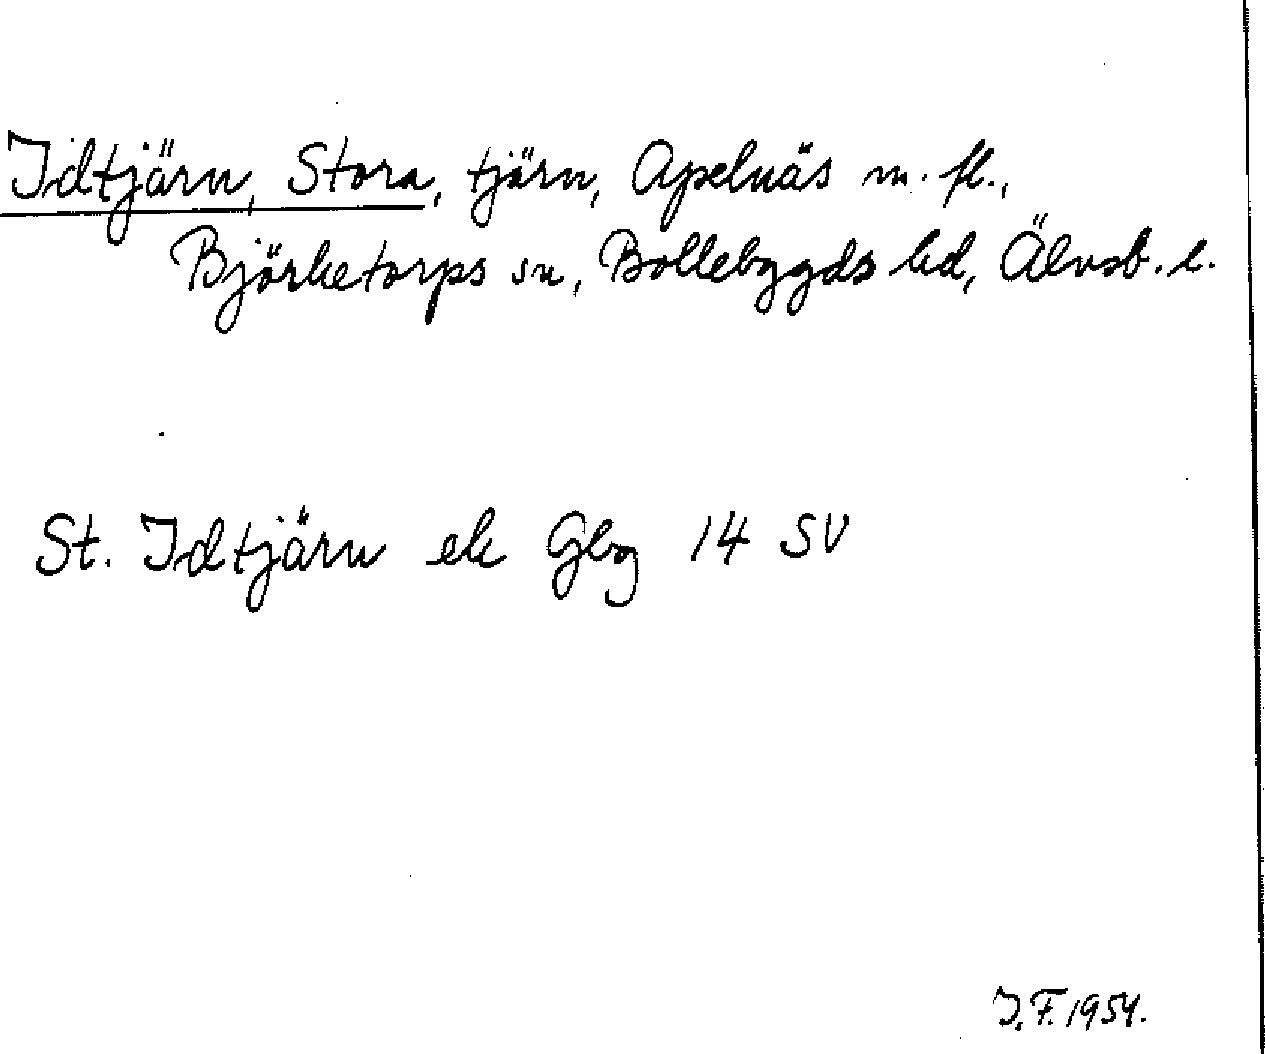 Idtjärn, Stora, tjärn, Apelnäs m. fl.,
Björketorps sn, Bollebygds hd, Älvsb. l.
St. Idtjärn ek Gbg 14 SV
I. F. 1954.